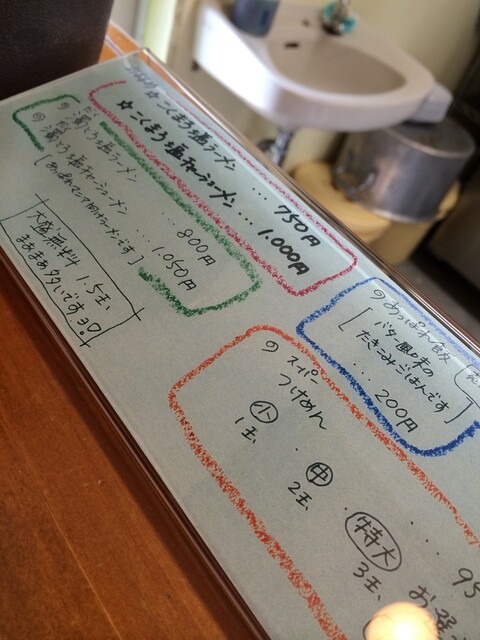 ☆こくまろ塩ラーメン … 750円
☆こくまろ塩チャーシューメン … 1.000円
濁とろ塩ラーメン … 800円
濁とろ塩チャーシューメン … 1.050円
大盛無料 1.5玉、
まあまあ多いですヨ
あっぱれ飯
[バター風味の
たきこみごはんです]
… 200円
スーパー
つけめん
小
1玉、
中
2玉、
特大
3玉、